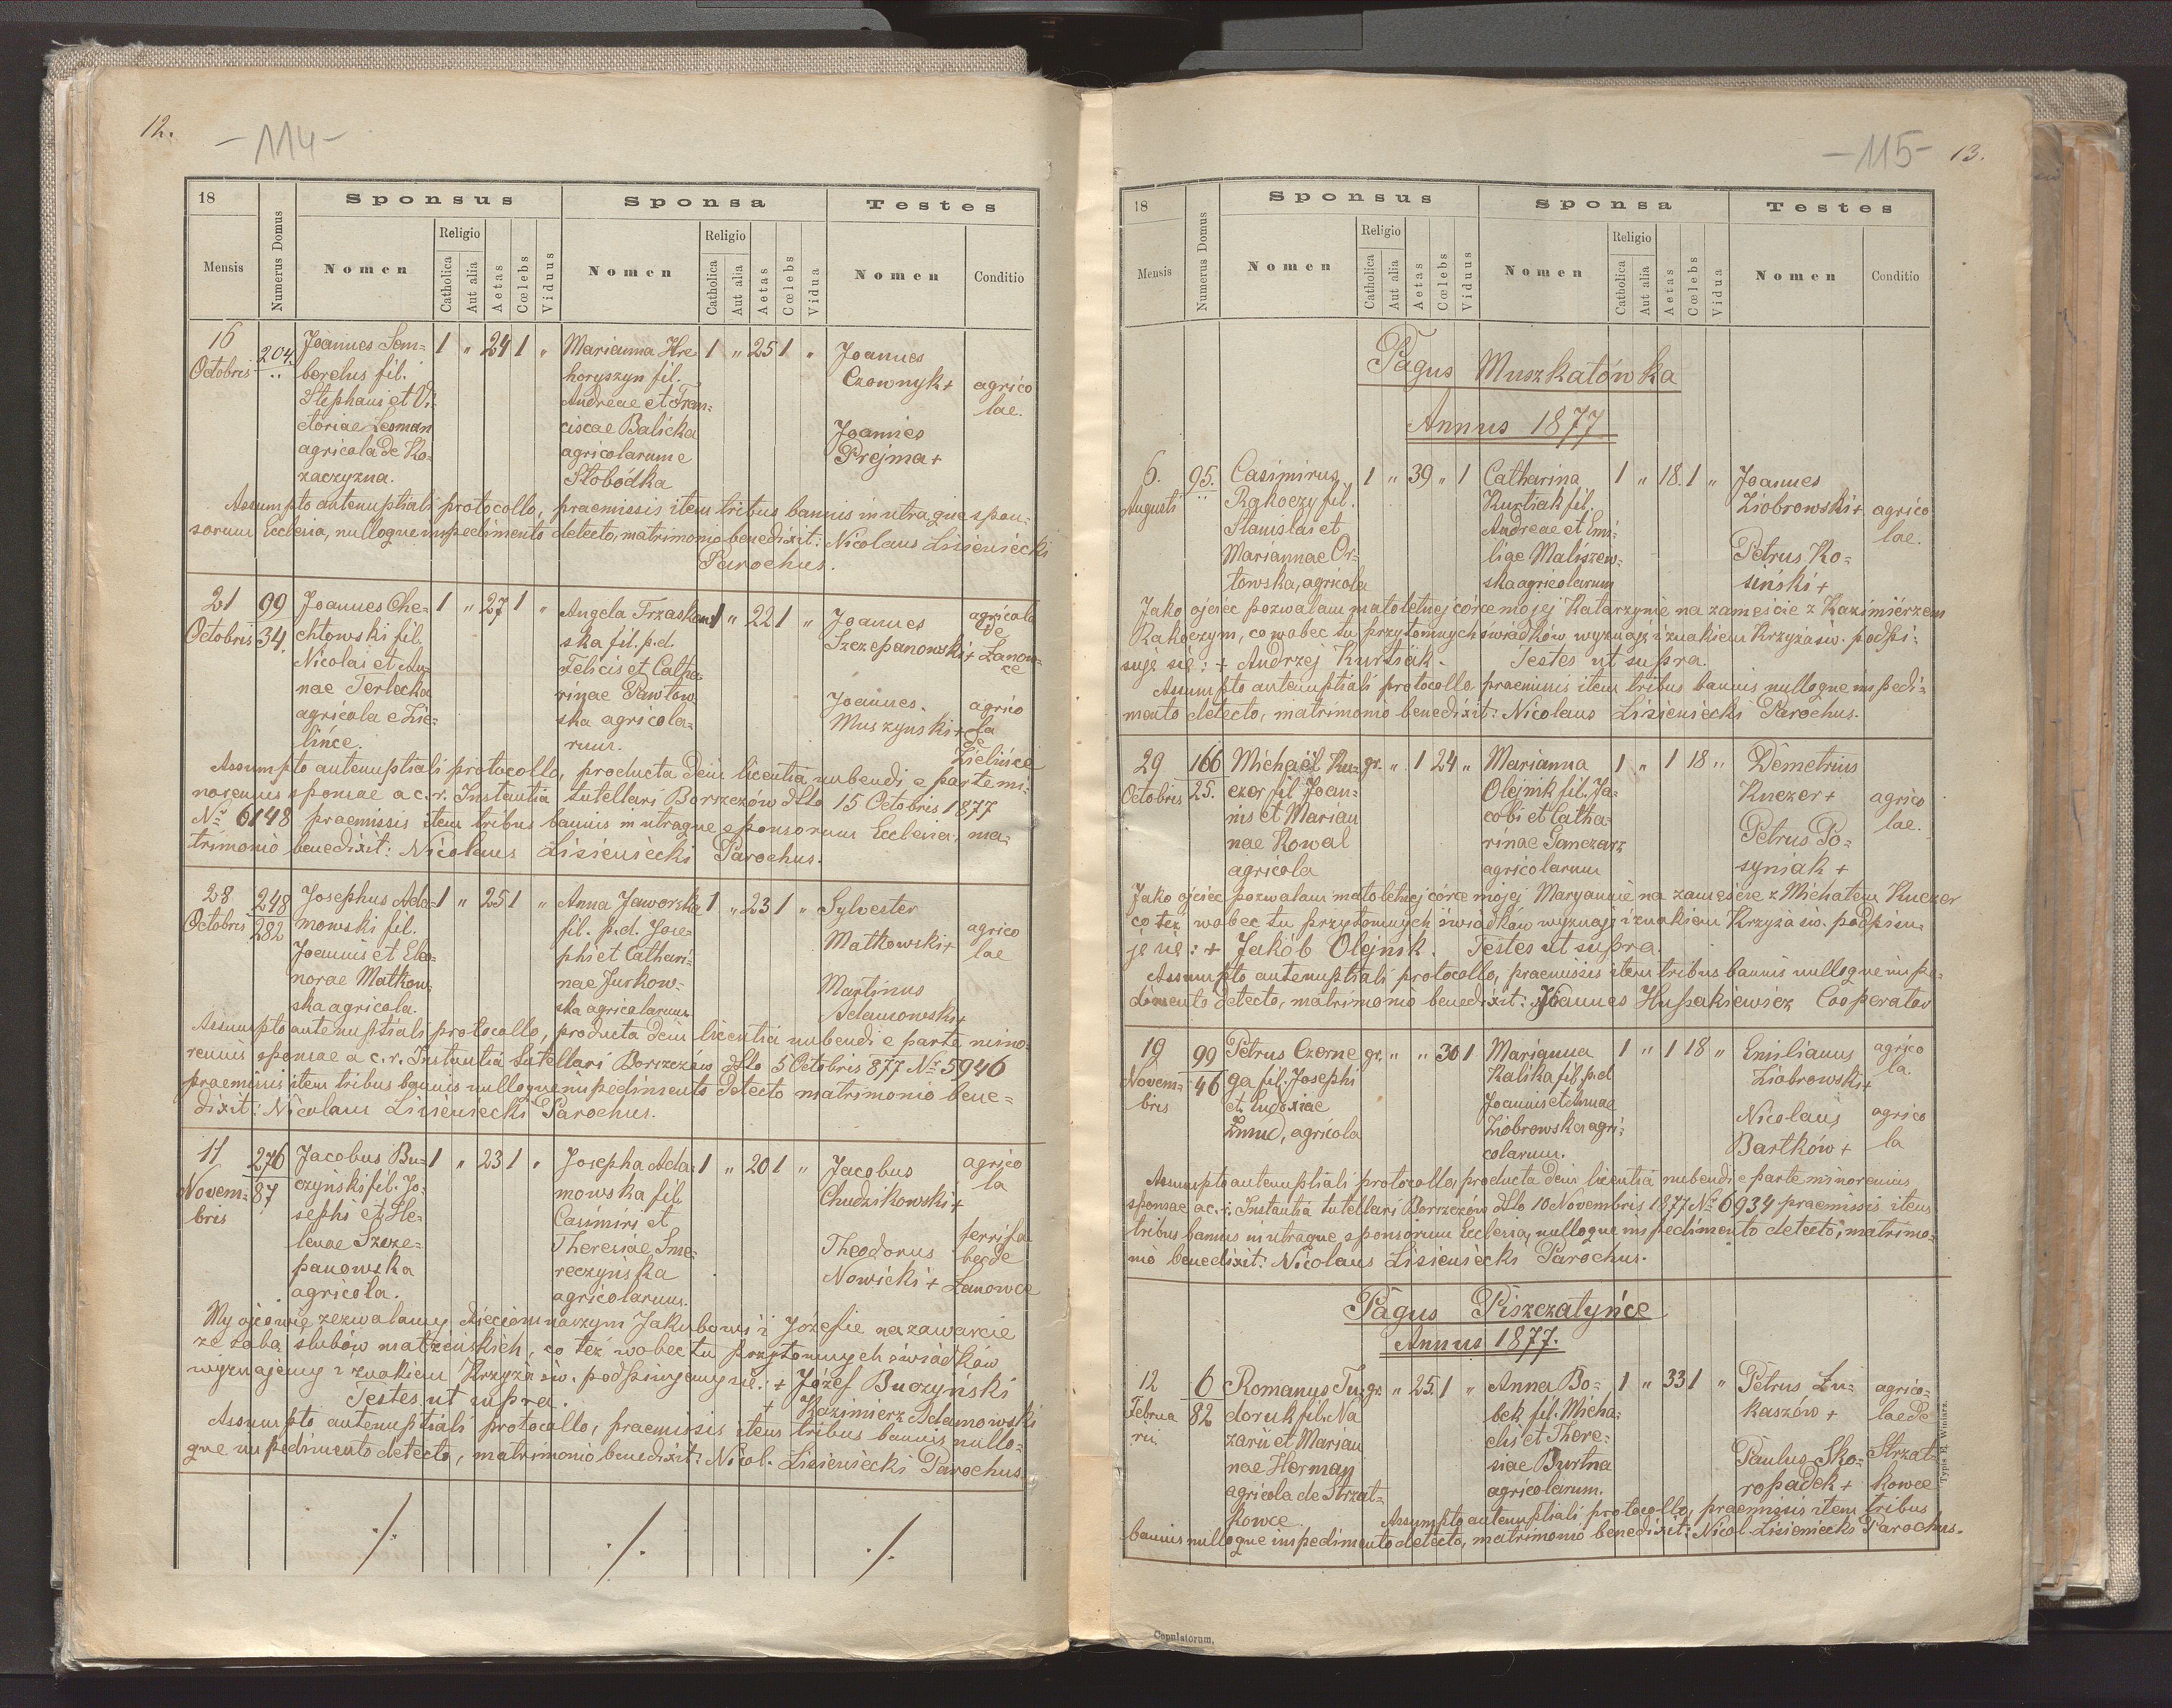 12.
-114-
18
Mensis
Numerus Domus
Sponsus
Nomen
Religio
Catholica
Aut alia
Aetas
Cœlebs
Viduus
Sponsa
Nomen
Religio
Catholica
Aut alia
Aetas
Cœlebs
Vidua
Testes
Nomen
Conditio
16
Octobris
204.
Joannes Sem-
borelus fil.
Stephani et Vi-
ctoriae Lesman
agricola de Ko-
zaczyzna.
1 " 24 1 "
Marianna Hre-
horyszyn fil.
Andreae et Fran-
ciscae Balicka
agricolarum e
Słobódka
1 " 25 1 "
Joannes
Czownyk +
Joannes
Prejma +
agrico
lae.
Assumpto antenuptiali protocollo, praemissis item tribus bannis in utraque spon-
sorum Ecclesia, nulloque impedimento detecto, matrimonio benedixit: Nicolaus Lisieniecki
Parochus.
21
Octobris
99
34.
Joannes Che-
chłowski fil.
Nicolai et An-
nae Terlecka
agricola e Zie-
lińce.
1 " 27 1 "
Angela Trzaskow-
ska fil. p.d.
Felicis et Catha-
rinae Pawłow-
ska agricola-
rum.
1 " 22 1 "
Joannes
Szczepanowski +
Joannes
Muszynski +
agricola
de
Łanow-
ce
agrico
la
de
Zielińce
Assumpto antenuptiali protocollo, producta dein licentia nubendi e parte mi-
norennis sponsae a c. r. Instantia tutellari Borszczów ddto 15 Octobris 1877
No 6148 praemissis item tribus bannis in utraque sponsorum Ecclesia, ma-
trimonio benedixit: Nicolaus Lisieniecki Parochus.
28
Octobris
248
282
Josephus Ada-
mowski fil.
Joannis et Eleo-
norae Matkow-
ska agricola.
1 " 25 1 "
Anna Jaworska
fil. p.d. Jose-
phi et Cathari-
nae Jurkow-
ska agricolarum
1 " 23 1 "
Sylvester
Matkowski +
Martinus
Adamowski +
agrico
lae
Assumpto antenuptiali protocollo, producta dein licentia nubendi e parte mino-
rennis sponsae a c. r. Instantia tutellari Borszczów ddto 5 Octobris 877 No 5946
praemissis item tribus bannis nulloque impedimento detecto matrimonio bene-
dixit: Nicolaus Lisieniecki Parochus.
11
Novem-
bris
276
87
Jacobus Bu-
czyński fil. Jo-
sephi et He-
lenae Szcze-
panowska
agricola.
1 " 23 1 "
Josepha Ada-
mowska fil
Casimiri et
Theresiae Sme-
reczyńska
agricolarum.
1 " 20 1 "
Jacobus
Chudzikowski +
Theodorus
Nowicki +
agrico
la
ferrifa
ber de
Łanowce
My ojcowie zezwalamy dzieciom naszym Jakubowi i Józefie na zawarcie
ze sobą ślubów małżeńskich, co też wobec tu przytomnych świadków
wyznajemy i znakiem Krzyża św. podpisujemy się: + Józef Buczyński
Testes ut supra. + Kazimierz Adamowski
Assumpto antenuptiali protocollo, praemissis item tribus bannis nullo-
que impedimento detecto, matrimonio benedixit: Nicol. Lisieniecki Parochus.
-115-
13.
18
Mensis
Numerus Domus
Sponsus
Nomen
Religio
Catholica
Aut alia
Aetas
Cœlebs
Viduus
Sponsa
Nomen
Religio
Catholica
Aut alia
Aetas
Cœlebs
Vidua
Testes
Nomen
Conditio
Pagus Muszkatówka
Annus 1877
6.
Augusti
95.
Casimirus
Rakoczy fil.
Stanislai et
Mariannae Or-
łowska, agricola
1 " 39 " 1
Catharina
Kurtiak fil.
Andreae et Emi-
liae Maliszew-
ska agricolarum
1 " 18. 1 "
Joannes
Ziobrowski +
Petrus Ko-
siński +
agrico
lae.
Jako ojciec pozwalam małoletniej córce mojej Katarzynie na zamęście z Kazimierzem
Rakoczym, co wobec tu przytomnych świadków wyznaję i znakiem Krzyża św. podpi-
suję się: + Andrzej Kurtiak. Testes ut supra.
Assumpto antenuptiali protocollo praemissis item tribus bannis nulloque impedi-
mento detecto, matrimonio benedixit: Nicolaus Lisieniecki Parochus.
29
Octobris
166
25.
Michaël Ku-
czer fil Joan-
nis et Marian
nae Kowal
agricola
gr. " 1 24 "
Marianna
Olejnik fil. Ja-
cobi et Catha-
rinae Ganczarz
agricolarum
1 " 1 18 "
Demetrius
Kuczer +
Petrus Po-
syniak +
agrico
lae.
Jako ojciec pozwalam małoletniej córce mojej Maryannie na zamęście z Michałem Kuczer
co też wobec tu przytomnych świadków wyznaję i znakiem Krzyża św. podpisu-
je się: + Jakób Olejnik. Testes ut supra.
Assumpto antenuptiali protocollo, praemissis item tribus bannis nulloque impe-
dimento detecto, matrimonio benedixit: Joannes Hupakiewicz Cooperator
19
Novem-
bris
99
46
Petrus Czerne
ga fil. Josephi
et Eudoxiae
Żmud, agricola
gr. " " 30 1
Marianna
Kalika fil. p.d
Joannis et Annae
Ziobrowska agri-
colarum.
1 " 1 18 "
Emilianus
Ziobrowski +
Nicolaus
Bartków +
agrico
la.
agrico
la
Assumpto antenuptiali protocollo, producta dein licentia nubendi e parte minorennis
sponsae a c. r. Instantia tutellari Borszczów ddto 10 Novembris 1877 No 6934 praemissis item
tribus bannis in utraque sponsorum Ecclesia, nulloque impedimento detecto, matrimo-
nio benedixit: Nicolaus Lisieniecki Parochus.
Pagus Piszczatyńce
Annus 1877.
12
Februa
rii
6
82
Romanus Tu-
doruk fil. Na
zarii et Marian
nae Herman
agricola de Strzał-
kowce
gr. " 25. 1 "
Anna Bo-
bek fil. Micha-
elis et There-
siae Burtna
agricolarum.
1 " 33 1 "
Petrus Łu-
kaszów +
Paulus Sko-
ropadek +
agrico-
lae de
Strzał-
kowce
Assumpto antenuptiali protocollo, praemissis item tribus
bannis nulloque impedimento detecto, matrimonio benedixit: Nicol Lisieniecki Parochus.
Typis E. Winiarz.
Copulatorum.